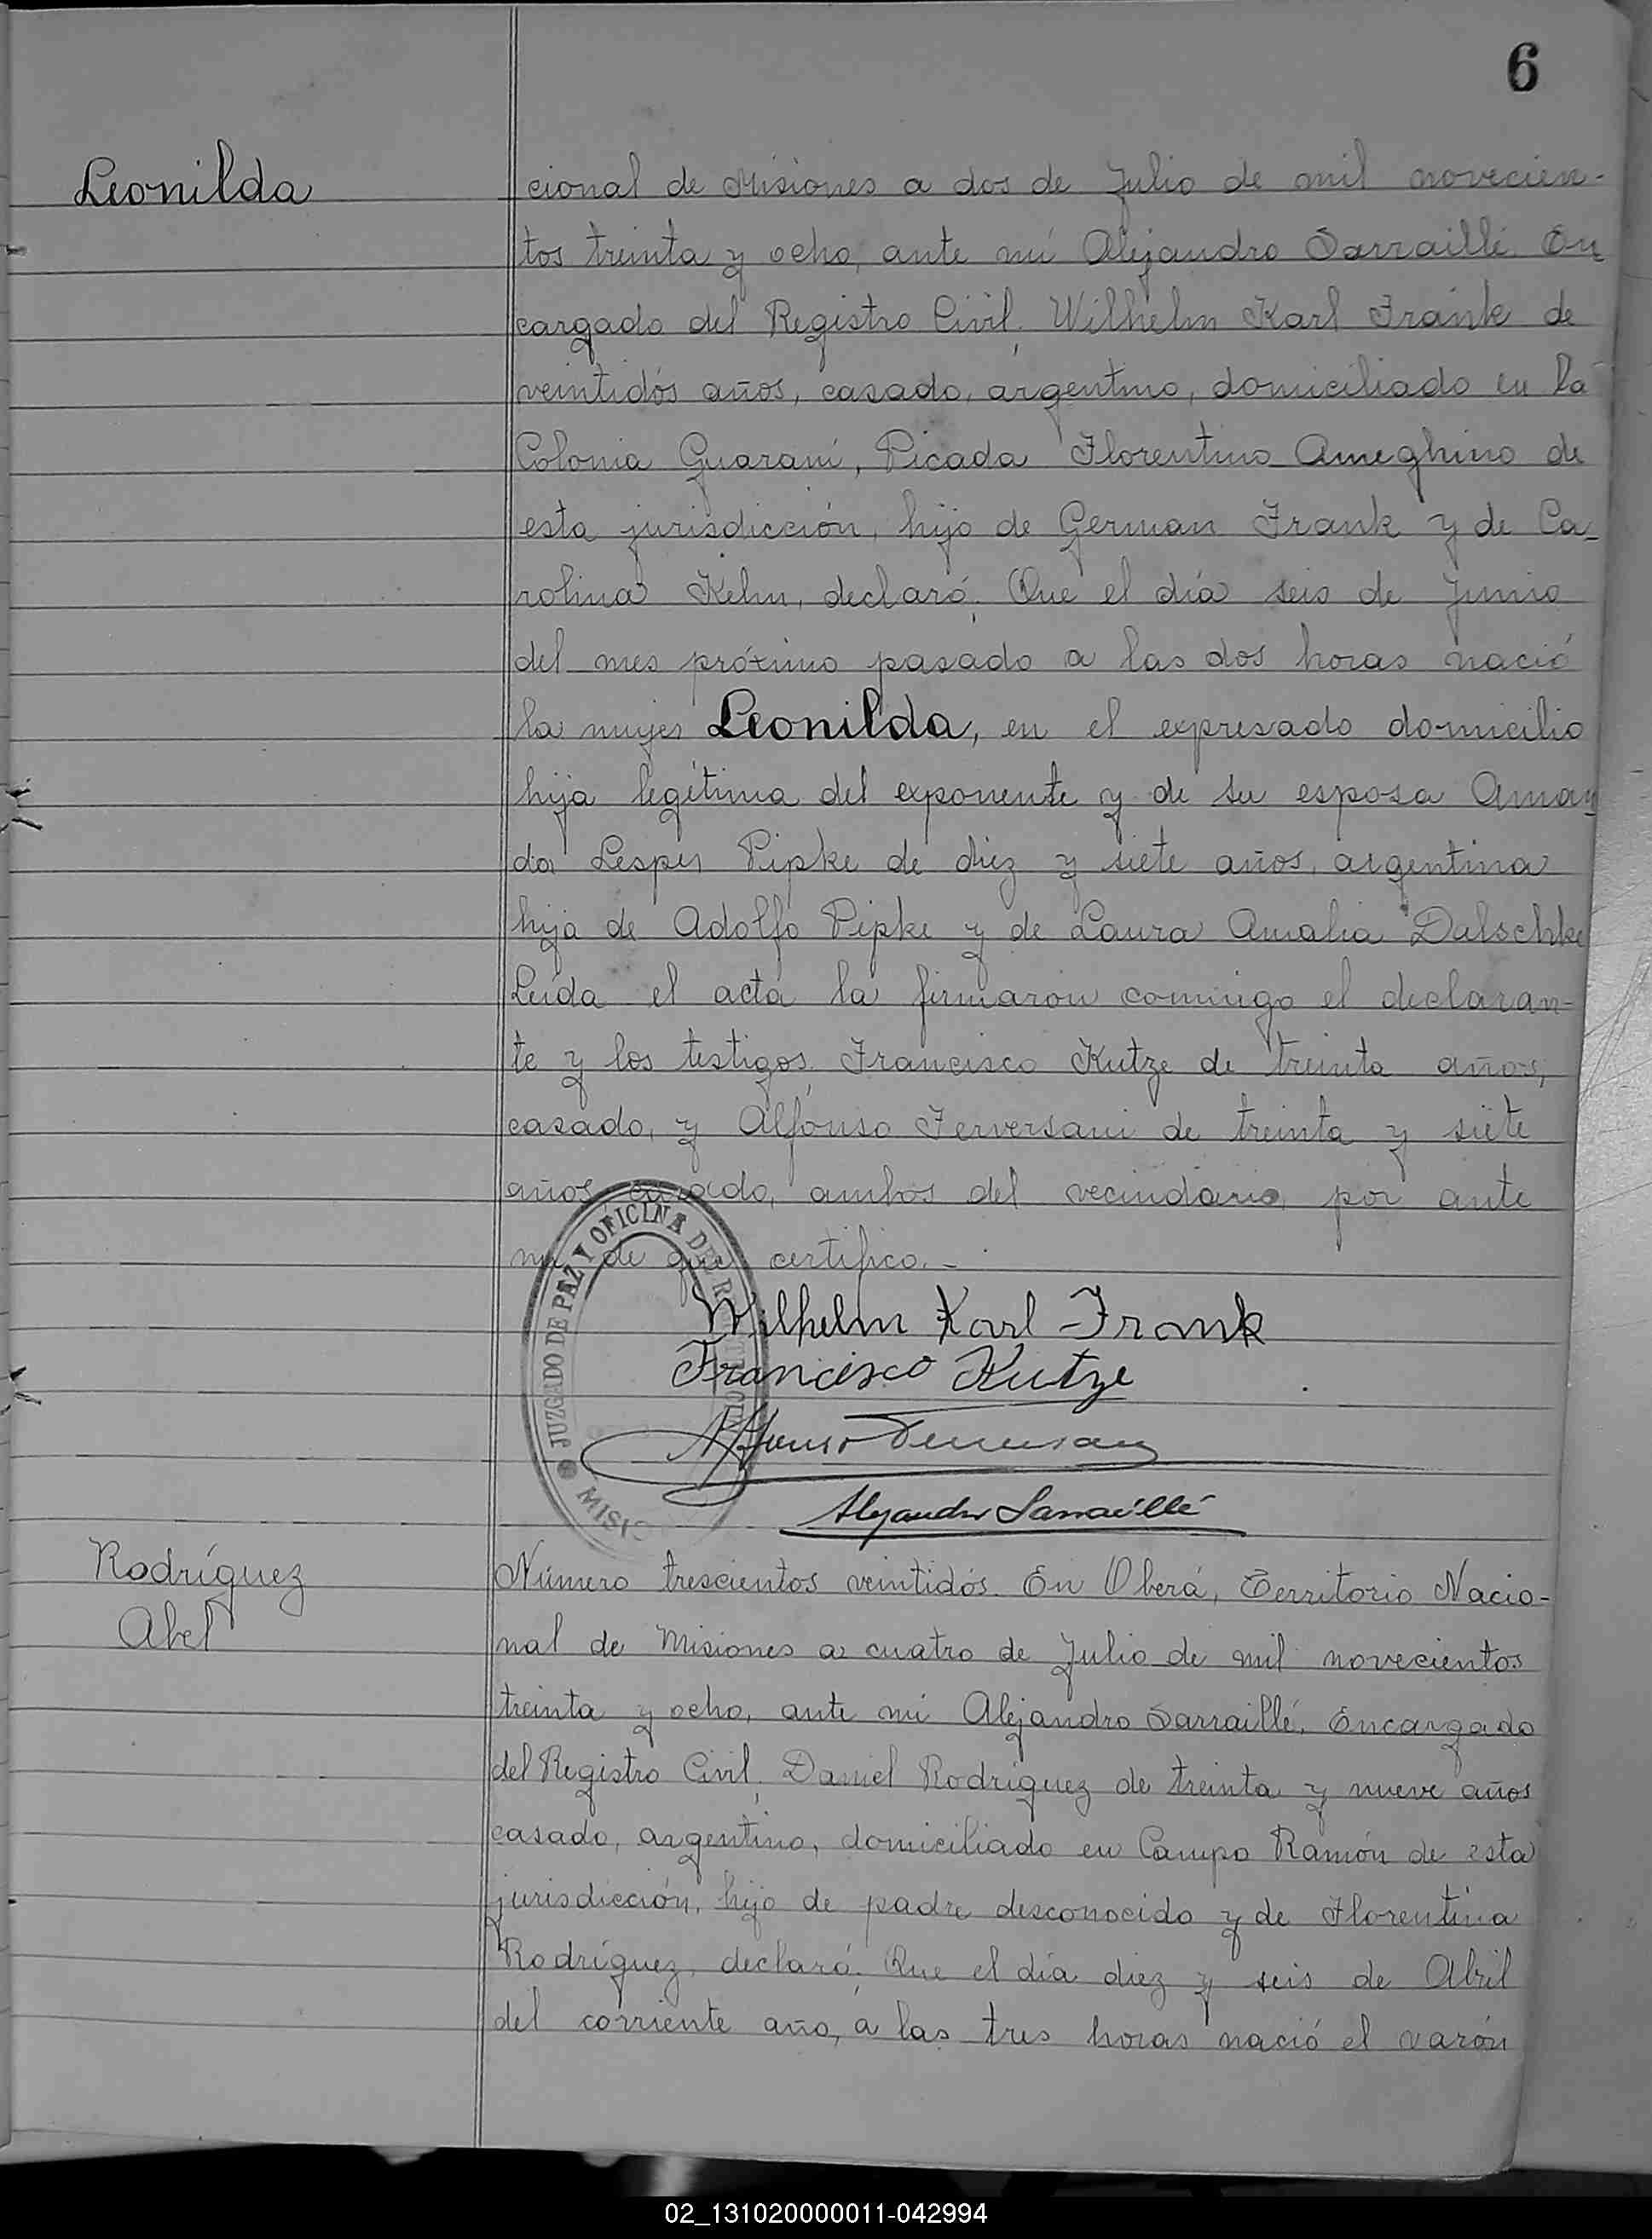 6
Leonilda
cional de Misiones a dos de Julio de mil novecien-
tos treinta y ocho, ante mí Alejandro Sarraillé En
cargado del Registro Civil, Wilhelm Karl Frank de
veintidós años, casado, argentino, domiciliado en la
Colonia Guaraní, Picada Florentino Ameghino de
esta jurisdicción, hijo de German Frank y de Ca-
rolina Kehn, declaró: Que el día seis de Junio
del mes próximo pasado a las dos horas nació
la mujer Leonilda, en el expresado domicilio
hija legítima del exponente y de su esposa Aman
da Pipke de diez y siete años, argentina
hija de Adolfo Pipke y de Laura Amalia Dalschke
Leída el acta la firmaron conmigo el declaran-
te y los testigos, Francisco Kutze de treinta años,
casado, y Alfonso Ferversani de treinta y siete
años casado, ambos del vecindario, por ante
mí de que certifico.-
JUZGADO DE PAZ Y OFICINA DEL R
MISIO
Wilhelm Karl Frank
Francisco Kutze
Alfonso
Alejandro Sarraillé
Rodríguez
Abel
Número trescientos veintidós. En Oberá, Territorio Nacio-
nal de Misiones a cuatro de Julio de mil novecientos
treinta y ocho, ante mí Alejandro Sarraillé, Encargado
del Registro Civil, Daniel Rodríguez de treinta y nueve años
casado, argentino, domiciliado en Campo Ramón de esta
jurisdicción, hijo de padre desconocido y de Florentina
Rodríguez, declaró: Que el día diez y seis de Abril
del corriente año, a las tres horas nació el varón
02_131020000011-042994